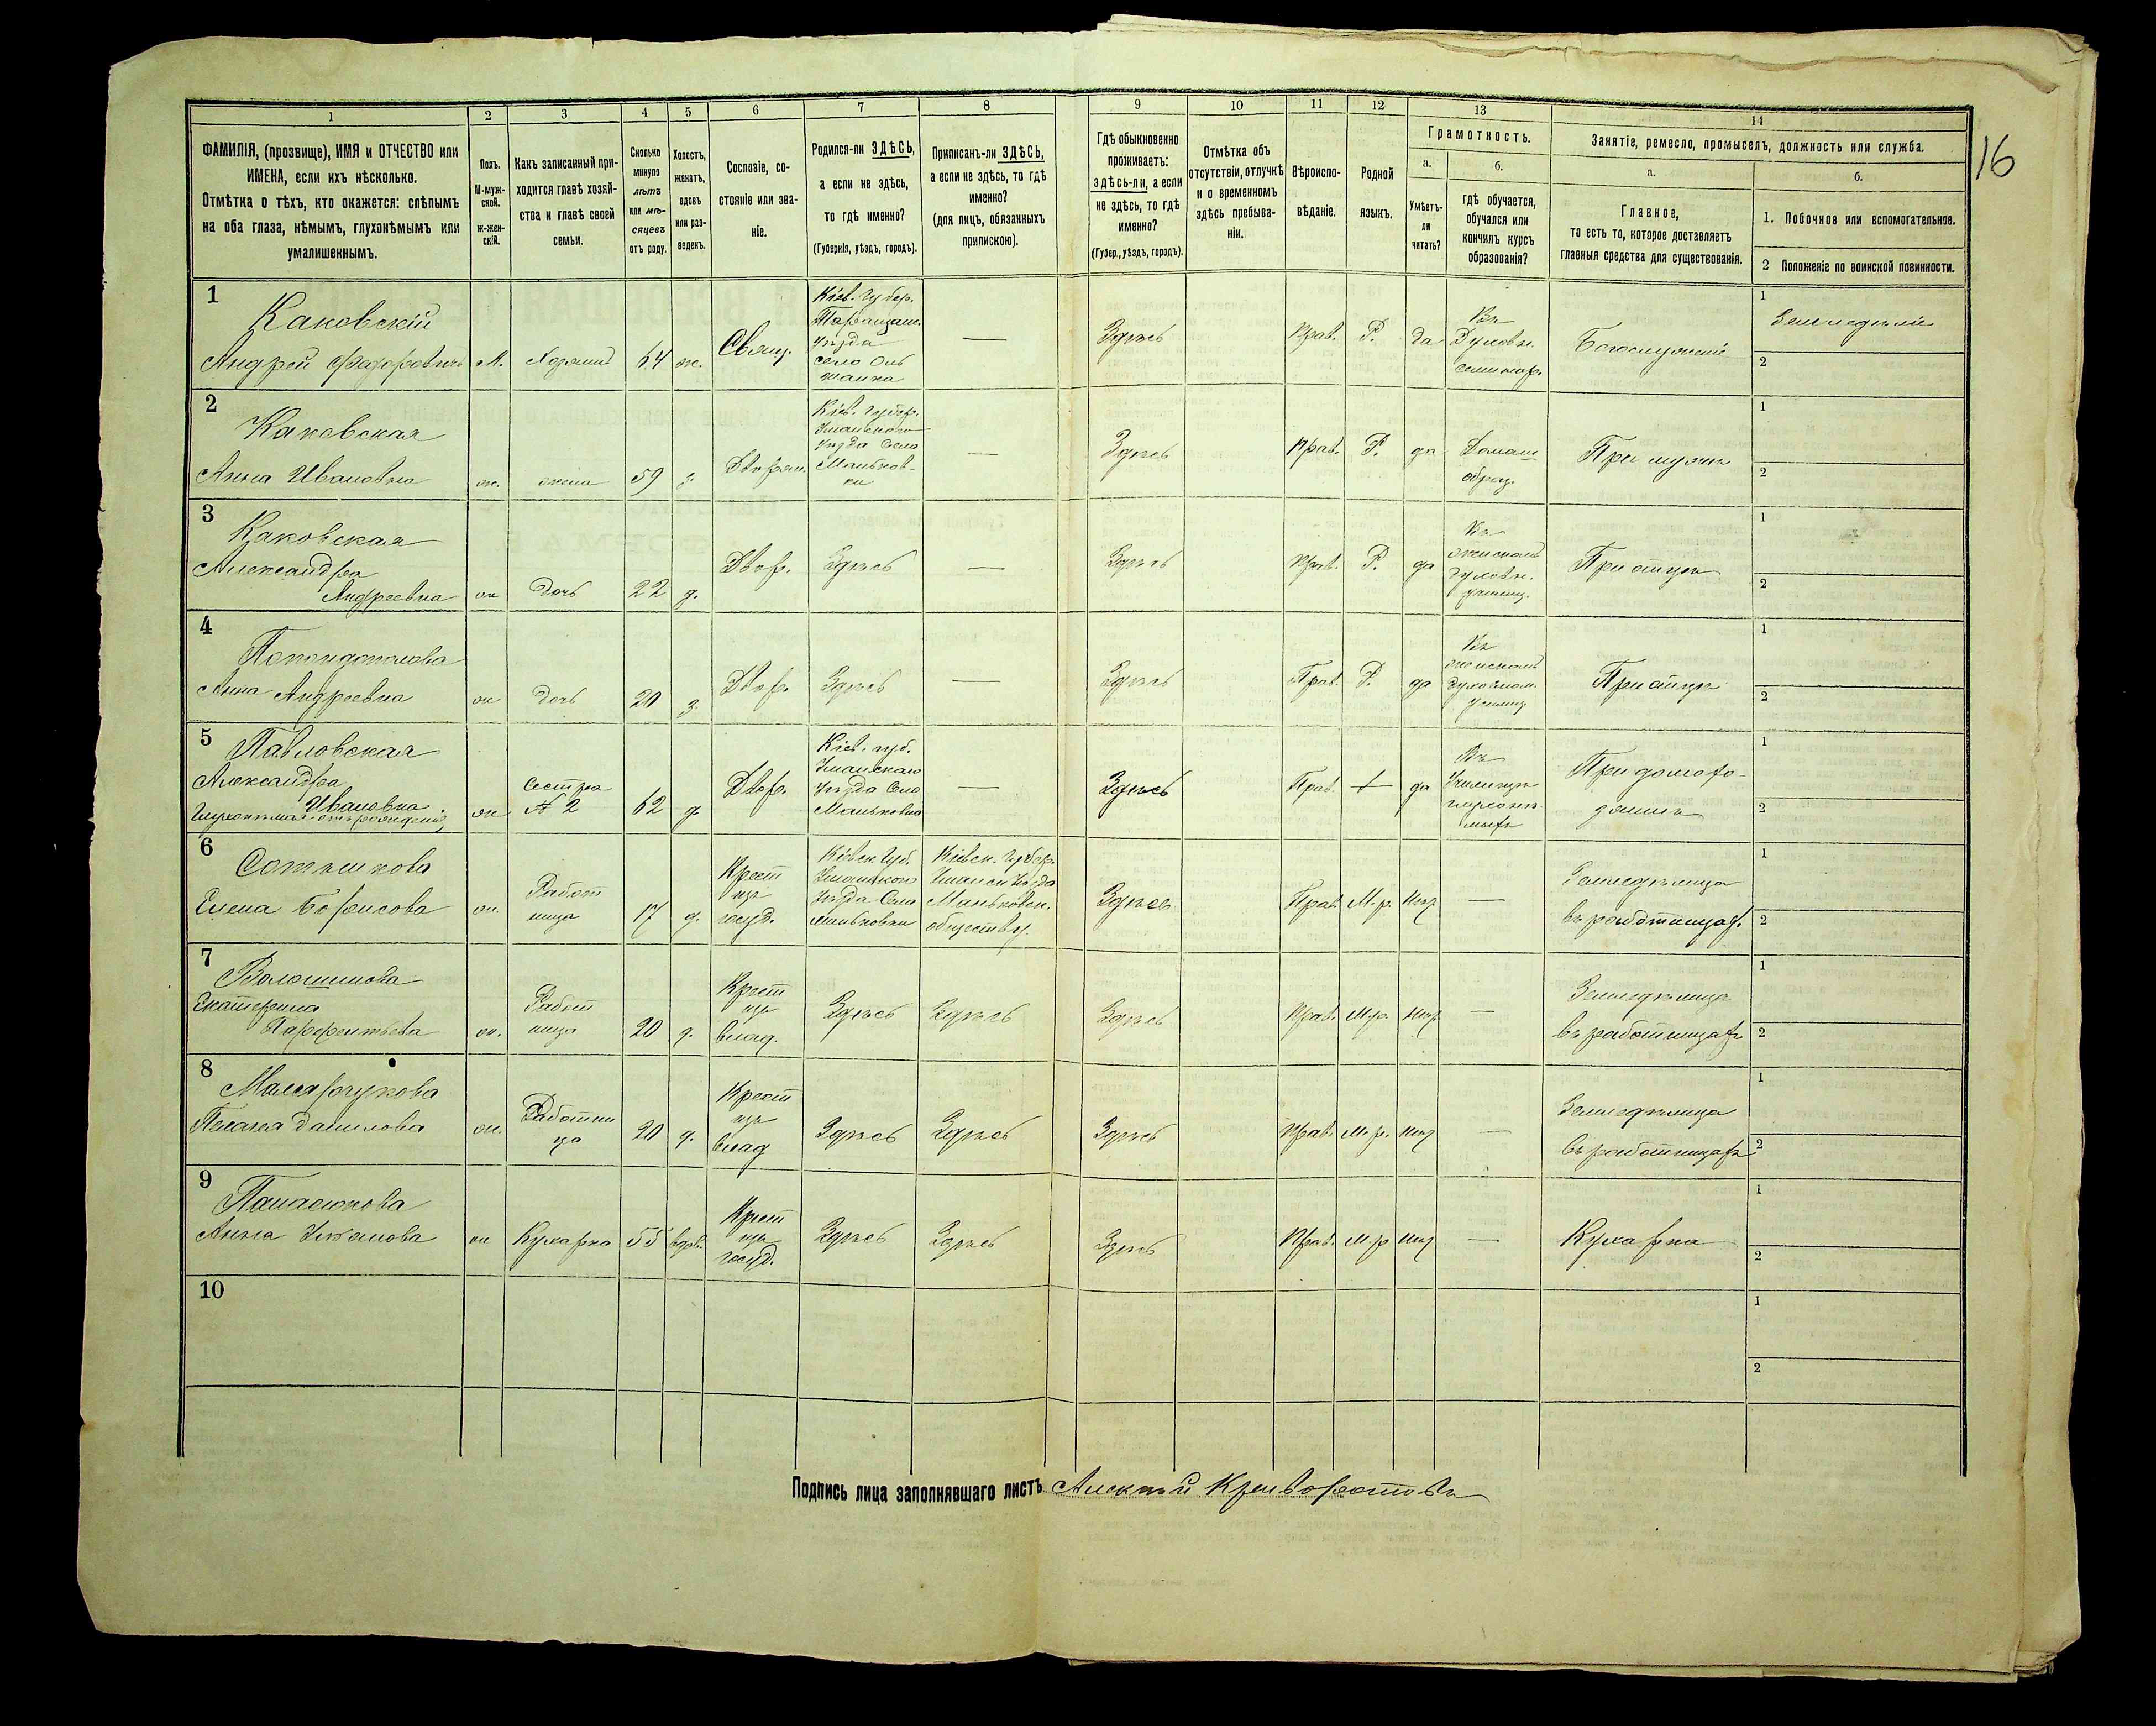 1
2
3
4
5
6
7
8
9
10
11
12
13
14
16
ФАМИЛІЯ, (прозвище), ИМЯ и ОТЧЕСТВО или
ИМЕНА, если ихъ нѣсколько.
Отмѣтка о тѣхъ, кто окажется: слѣпымъ
на оба глаза, нѣмымъ, глухонѣмымъ или
умалишеннымъ.
Полъ.
М-муж-
ской.
ж-жен-
скій.
Какъ записанный при-
ходится главѣ хозяй-
ства и главѣ своей
семьи.
Сколько
минуло
лѣтъ
или мѣ-
сяцевъ
отъ роду.
Холостъ,
женатъ,
вдовъ
или раз-
веденъ.
Сословіе, со-
стояніе или зва-
ніе.
Родился-ли ЗДѢСЬ,
а если не здѣсь,
то гдѣ именно?
(Губернія, уѣздъ, городъ).
Приписанъ-ли ЗДѢСЬ,
а если не здѣсь, то гдѣ
именно?
(для лицъ, обязанныхъ
припискою).
Гдѣ обыкновенно
проживаетъ:
здѣсь-ли, а если
не здѣсь, то гдѣ
именно?
(Губер., уѣздъ, городъ).
Отмѣтка объ
отсутствіи, отлучкѣ
и о временномъ
здѣсь пребыва-
ніи.
Вѣроиспо-
вѣданіе.
Родной
языкъ.
Грамотность.
а.
Умѣетъ-
ли
читать?
б.
гдѣ обучается,
обучался или
кончилъ курсъ
образованія?
Занятіе, ремесло, промыселъ, должность или служба.
а.
Главное,
то есть то, которое доставляетъ
главныя средства для существованія.
б.
1. Побочное или вспомогательное.
2 Положеніе по воинской повинности.
1
Каковскій
Андрей Федоровичъ
м.
Хозяинъ
64
ж.
Свящ.
Кіев. Губер.
Таращанс.
уѣзда
село Оль
шанка
—
Здѣсь
Прав.
Р.
да
Въ
Духовн.
семинар.
Богослуженіе
1
Земледѣліе
2
2
Каковская
Анна Ивановна
ж.
жена
59
з.
Дворян.
Кіев. Губер.
Уманского
уѣзда Села
Маньков-
ки
—
Здѣсь
Прав.
Р.
да
Домаш
образ.
При мужѣ
1
2
3
Каковская
Александра
Андреевна
ж
дочь
22
д.
Двор.
Здѣсь
—
Здѣсь
Прав.
Р.
да
Въ
женскомъ
духовн.
училищ.
При отцѣ
1
2
4
Анна Андреевна
ж
дочь
20
з.
Двор.
Здѣсь
—
Здѣсь
Прав.
Р.
да
Въ
женскомъ
духовном.
училищ
При отцѣ
1
2
5
Павловская
Александра
Ивановна
Глухонѣмая отъ рожденія
ж
Сестра
№ 2
62
д.
Двор.
Кіев. губ.
Уманскаго
уѣзда Село
Маньковка
—
Здѣсь
Прав.
—
да
Въ
Училищѣ
глухонѣ
мыхъ
При домохо-
зяинѣ
1
2
6
Сотникова
Елена Борисова
ж.
Работ
ница
17
д.
Крест
изъ
госуд.
Кіевск. Губ.
Уманского
уѣзда Села
Маньковки
Кіевск. Губер.
Уманск уѣзда
Маньковск.
обществу.
Здѣсь
Прав.
М.р.
нѣт
—
Земледѣлица
въ работницах.
1
2
7
Волошинова
Екатерина
Парфентьева
ж.
Работ
ница
20
д.
Крест
изъ
влад.
Здѣсь
Здѣсь
Здѣсь
Прав.
М.р.
нѣт
—
Земледѣлица
въ работницахъ
1
2
8
Малярчукова
Пелагея Данилова
ж.
Работни
ца
20
д.
Крест
изъ
влад
Здѣсь
Здѣсь
Здѣсь
Прав.
М.р.
нѣт
—
Земледѣлица
въ работницахъ
1
2
9
Панасюкова
Анна
ж
Кухарка
55
вдов.
Крест
изъ
госуд.
Здѣсь
Здѣсь
Здѣсь
Прав.
М.р
нѣт
—
Кухарка
1
2
10
1
2
Подпись лица заполнявшаго листъ Алексѣй Криворотовъ